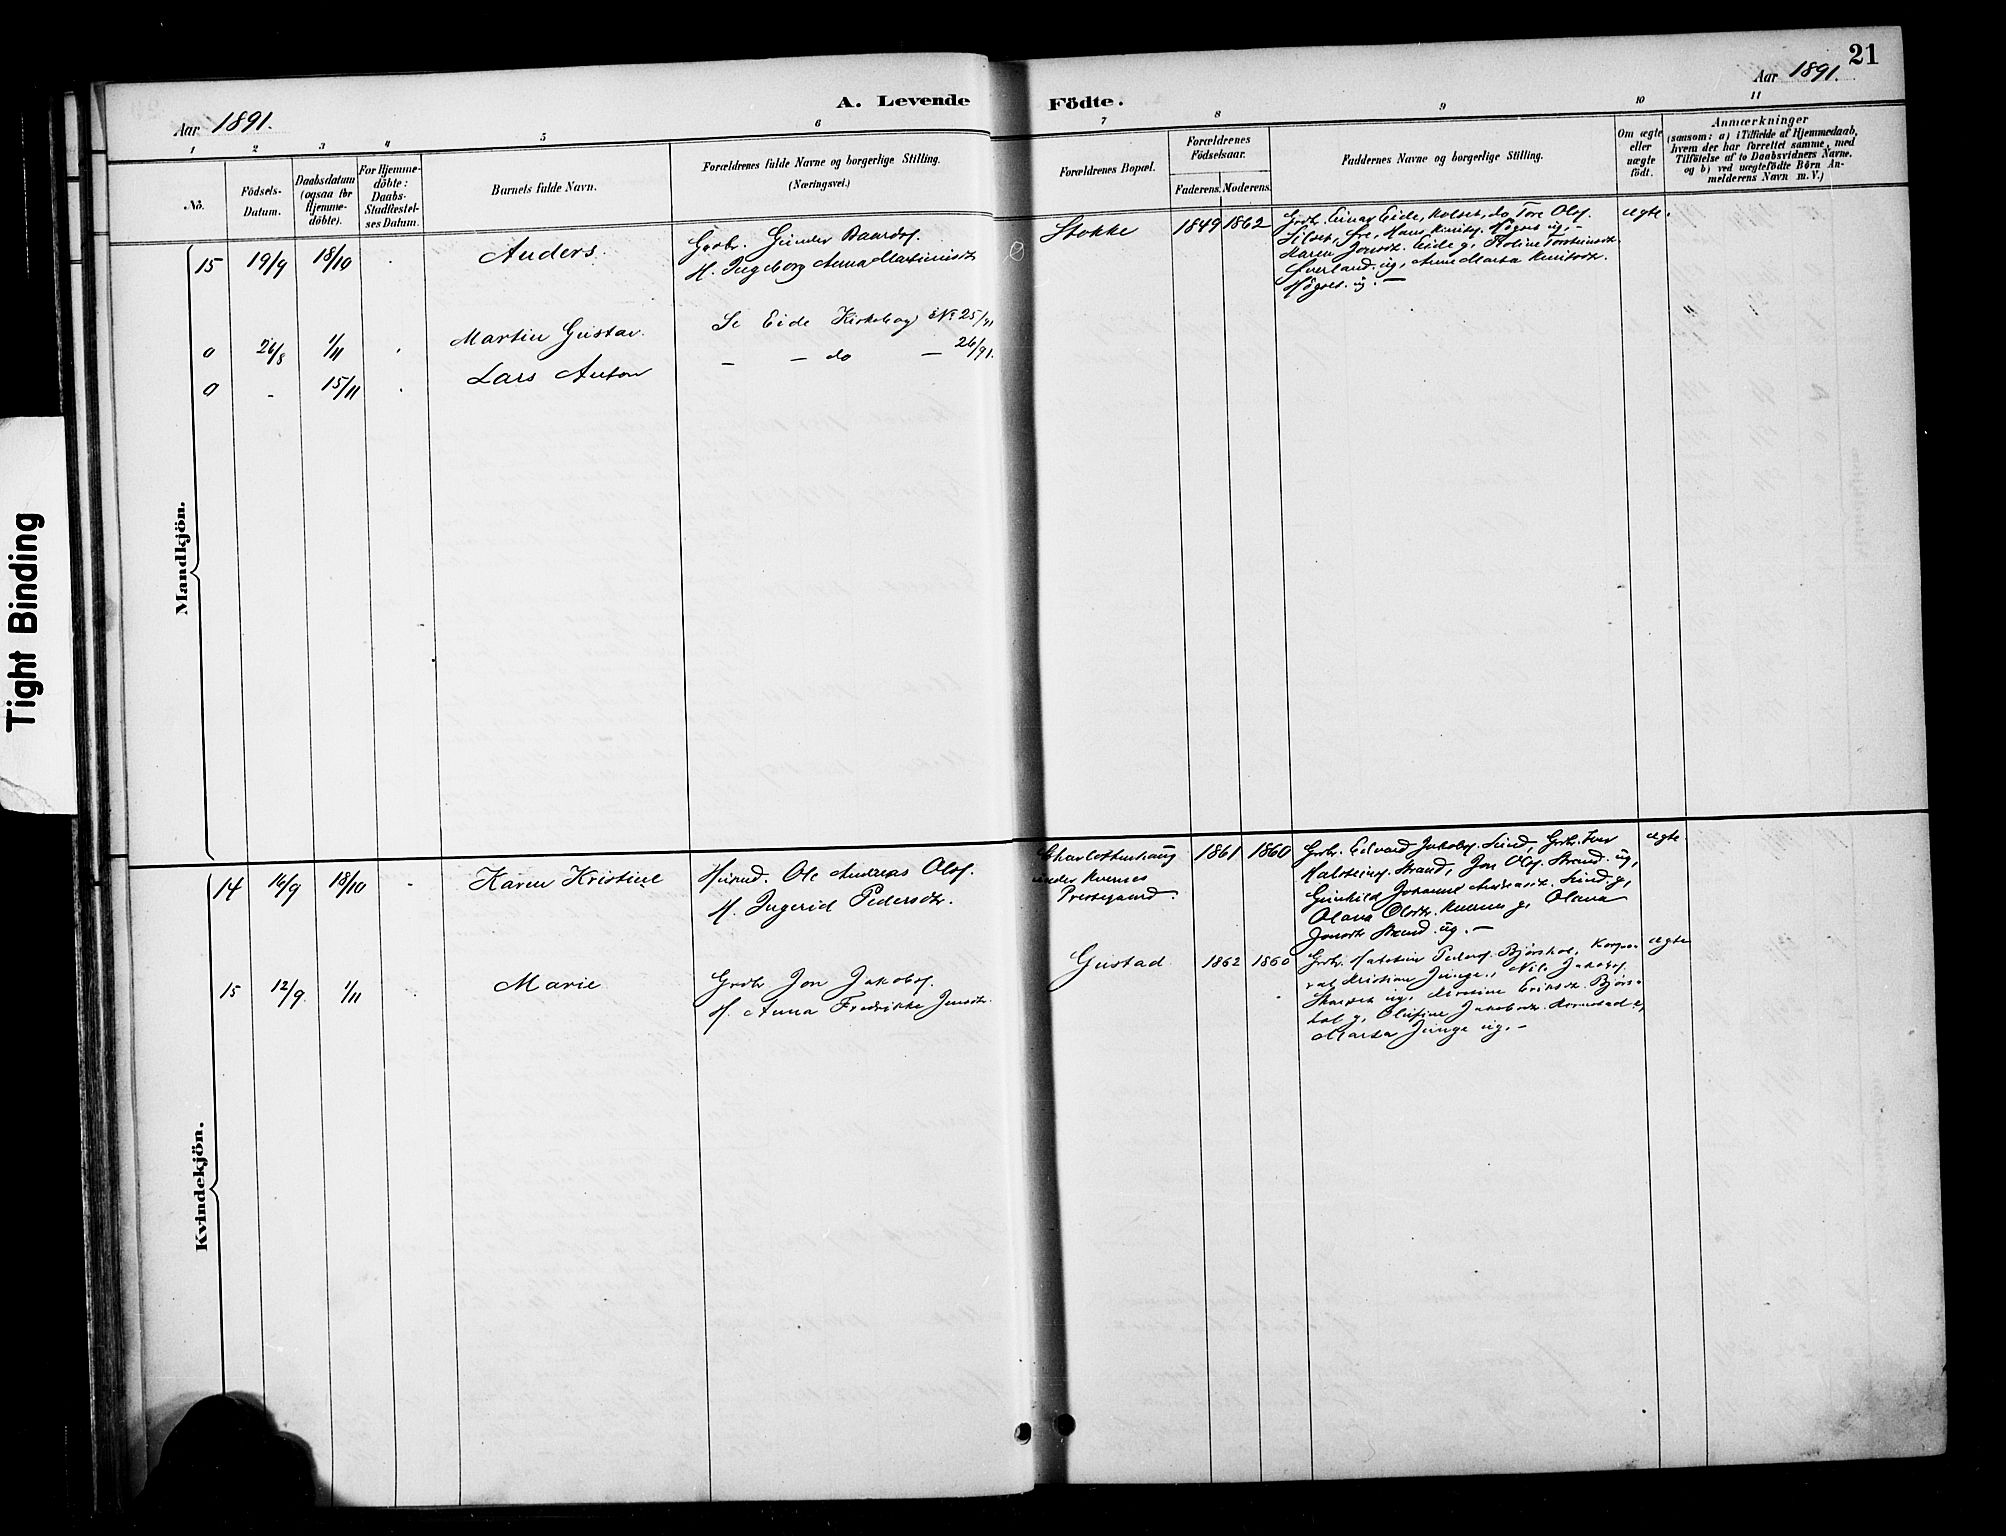 21
Aar 1891.
Aar 1891.
A. Levende Födte.
1 2 3 4 5 6 7 8 9 10 11
Nö.
Födsels-
Datum.
Daabsdatum
(ogsaa for
Hjemme-
döbte).
For Hjemme-
döbte:
Daabs-
Stadfæstel-
ses Datum.
Barnets fulde Navn.
Forældrenes fulde Navne og borgerlige Stilling.
(Næringsvei.)
Forældrenes Bopæl.
Forældrenes
Födselsaar.
Faderens. Moderens.
Faddernes Navne og borgerlige Stilling.
Om ægte
eller
uægte
födt.
Anmærkninger
(saasom: a) i Tilfælde af Hjemmedaab,
hvem der har forrettet samme, med
Tilföielse af to Daabsvidners Navne.
og b) ved uægtefödte Börn An-
melderens Navn m. V.)
Tight Binding
Mandkjön.
15 19/9 18/10 Anders.
Grdbr. Gunder Baards.
H. Ingeborg Anna Martinusdt.
Stokke 1849 1862
Grdbr. Einar Eide, do Tore Ols.
Silset, Hans Knuts. Högset ug,
Karen Jonsdt. Eide g, Torsteinsdt.
ug, Anne Marta Knutsdt.
Högset. ug. —
ægte.
0 26/8 1/11 Martin Gustav.
Se Eide Kirkebog No 25/91
0 - 15/11 Lars Anton
— — do — 26/91.
Kvindekjön.
14 16/9 18/10 Karen Kristine
Husmd. Ole Andreas Ols.
H. Ingerid Pedersdt.
Charlottenhaug
under Kvernes
Prestegaard.
1861 1860
Grdbr. Edvard Jakobs. Sund, Grdbr. Iver
Halsteins. Strand, Jon Ols. Strand. ug,
Gunhild Johanne Andreasdt. Sund. g,
Olava Olsdtr. Kvernes g, Olana
Jonsdtr Strand. ug. —
ægte.
15 12/9 1/11 Marie
Grdbr Jon Jakobs.
H. Anna Fredrikke Jensdt.
Gustad 1862 1860
Grdbr. Halstein Peders. Björshol, Korpo-
ral Kristian Junge, Nils Jakobs.
ug, Eriksdt. Björs-
hol g, Olufine Jakobsdt. g,
Marta Junge ug. —
ægte